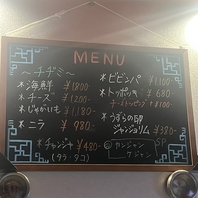 MENU
〜チヂミ〜
*海鮮 ¥1800
*チーズ ¥1200-
*じゃがいも ¥1100-
*ニラ ¥980.-
*チャンジャ ¥480-
(タラ・タコ)
*ビビンパ ¥1,100
*トッポッキ ¥680-
チーズトッピング +¥100
*うずらの卵
ジャンジョリム ¥380-
カンジャン
ケジャン
SP